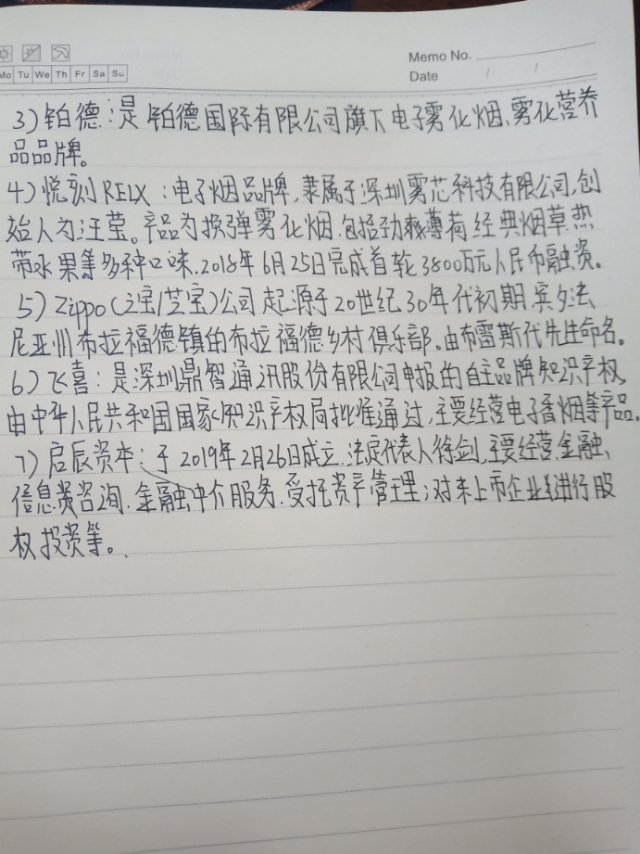 Memo No.
Mo Tu We Th Fr Sa Su
Date / /
3）铂德：是铂德国际有限公司旗下电子雾化烟、雾化营养
品品牌。
4）悦刻RELX：电子烟品牌，隶属于深圳雾芯科技有限公司，创
始人为汪莹。产品为换弹雾化烟.包括劲爽薄荷经典烟草.热
带水果等多种口味.2018年6月25日完成首轮3800万元人民币融资。
5）Zippo（之宝/芝宝）公司起源于20世纪30年代初期.宾夕法
尼亚州布拉福德镇的布拉福德乡村俱乐部.由布雷斯代先生命名。
6）飞喜：是深圳鼎智通讯股份有限公司申报的自主品牌知识产权，
由中华人民共和国国家知识产权局批准通过，主要经营电子香烟等产品.
7）启辰资本：于2019年2月26日成立.法定代表人徐剑.主要经营.金融、
信息类咨询.金融中介服务.受托资产管理；对未上市企业进行股
权投资等。